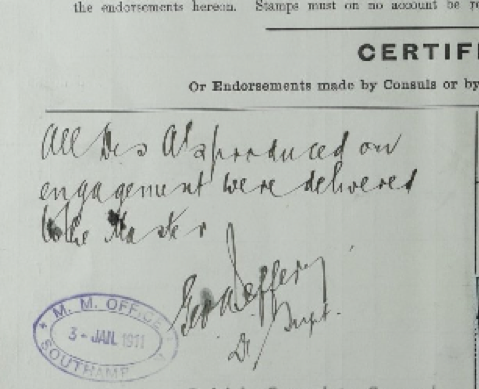 the endorsements hereon. Stamps must on no account be re
CERTIFI
Or Endorsements made by Consuls or by
All Dis As produced on
engagement were delivered
to the Master
Geo Jeffery
D/ Supt.
M. M. OFFICE
3 - JAN. 1911
SOUTHAMP